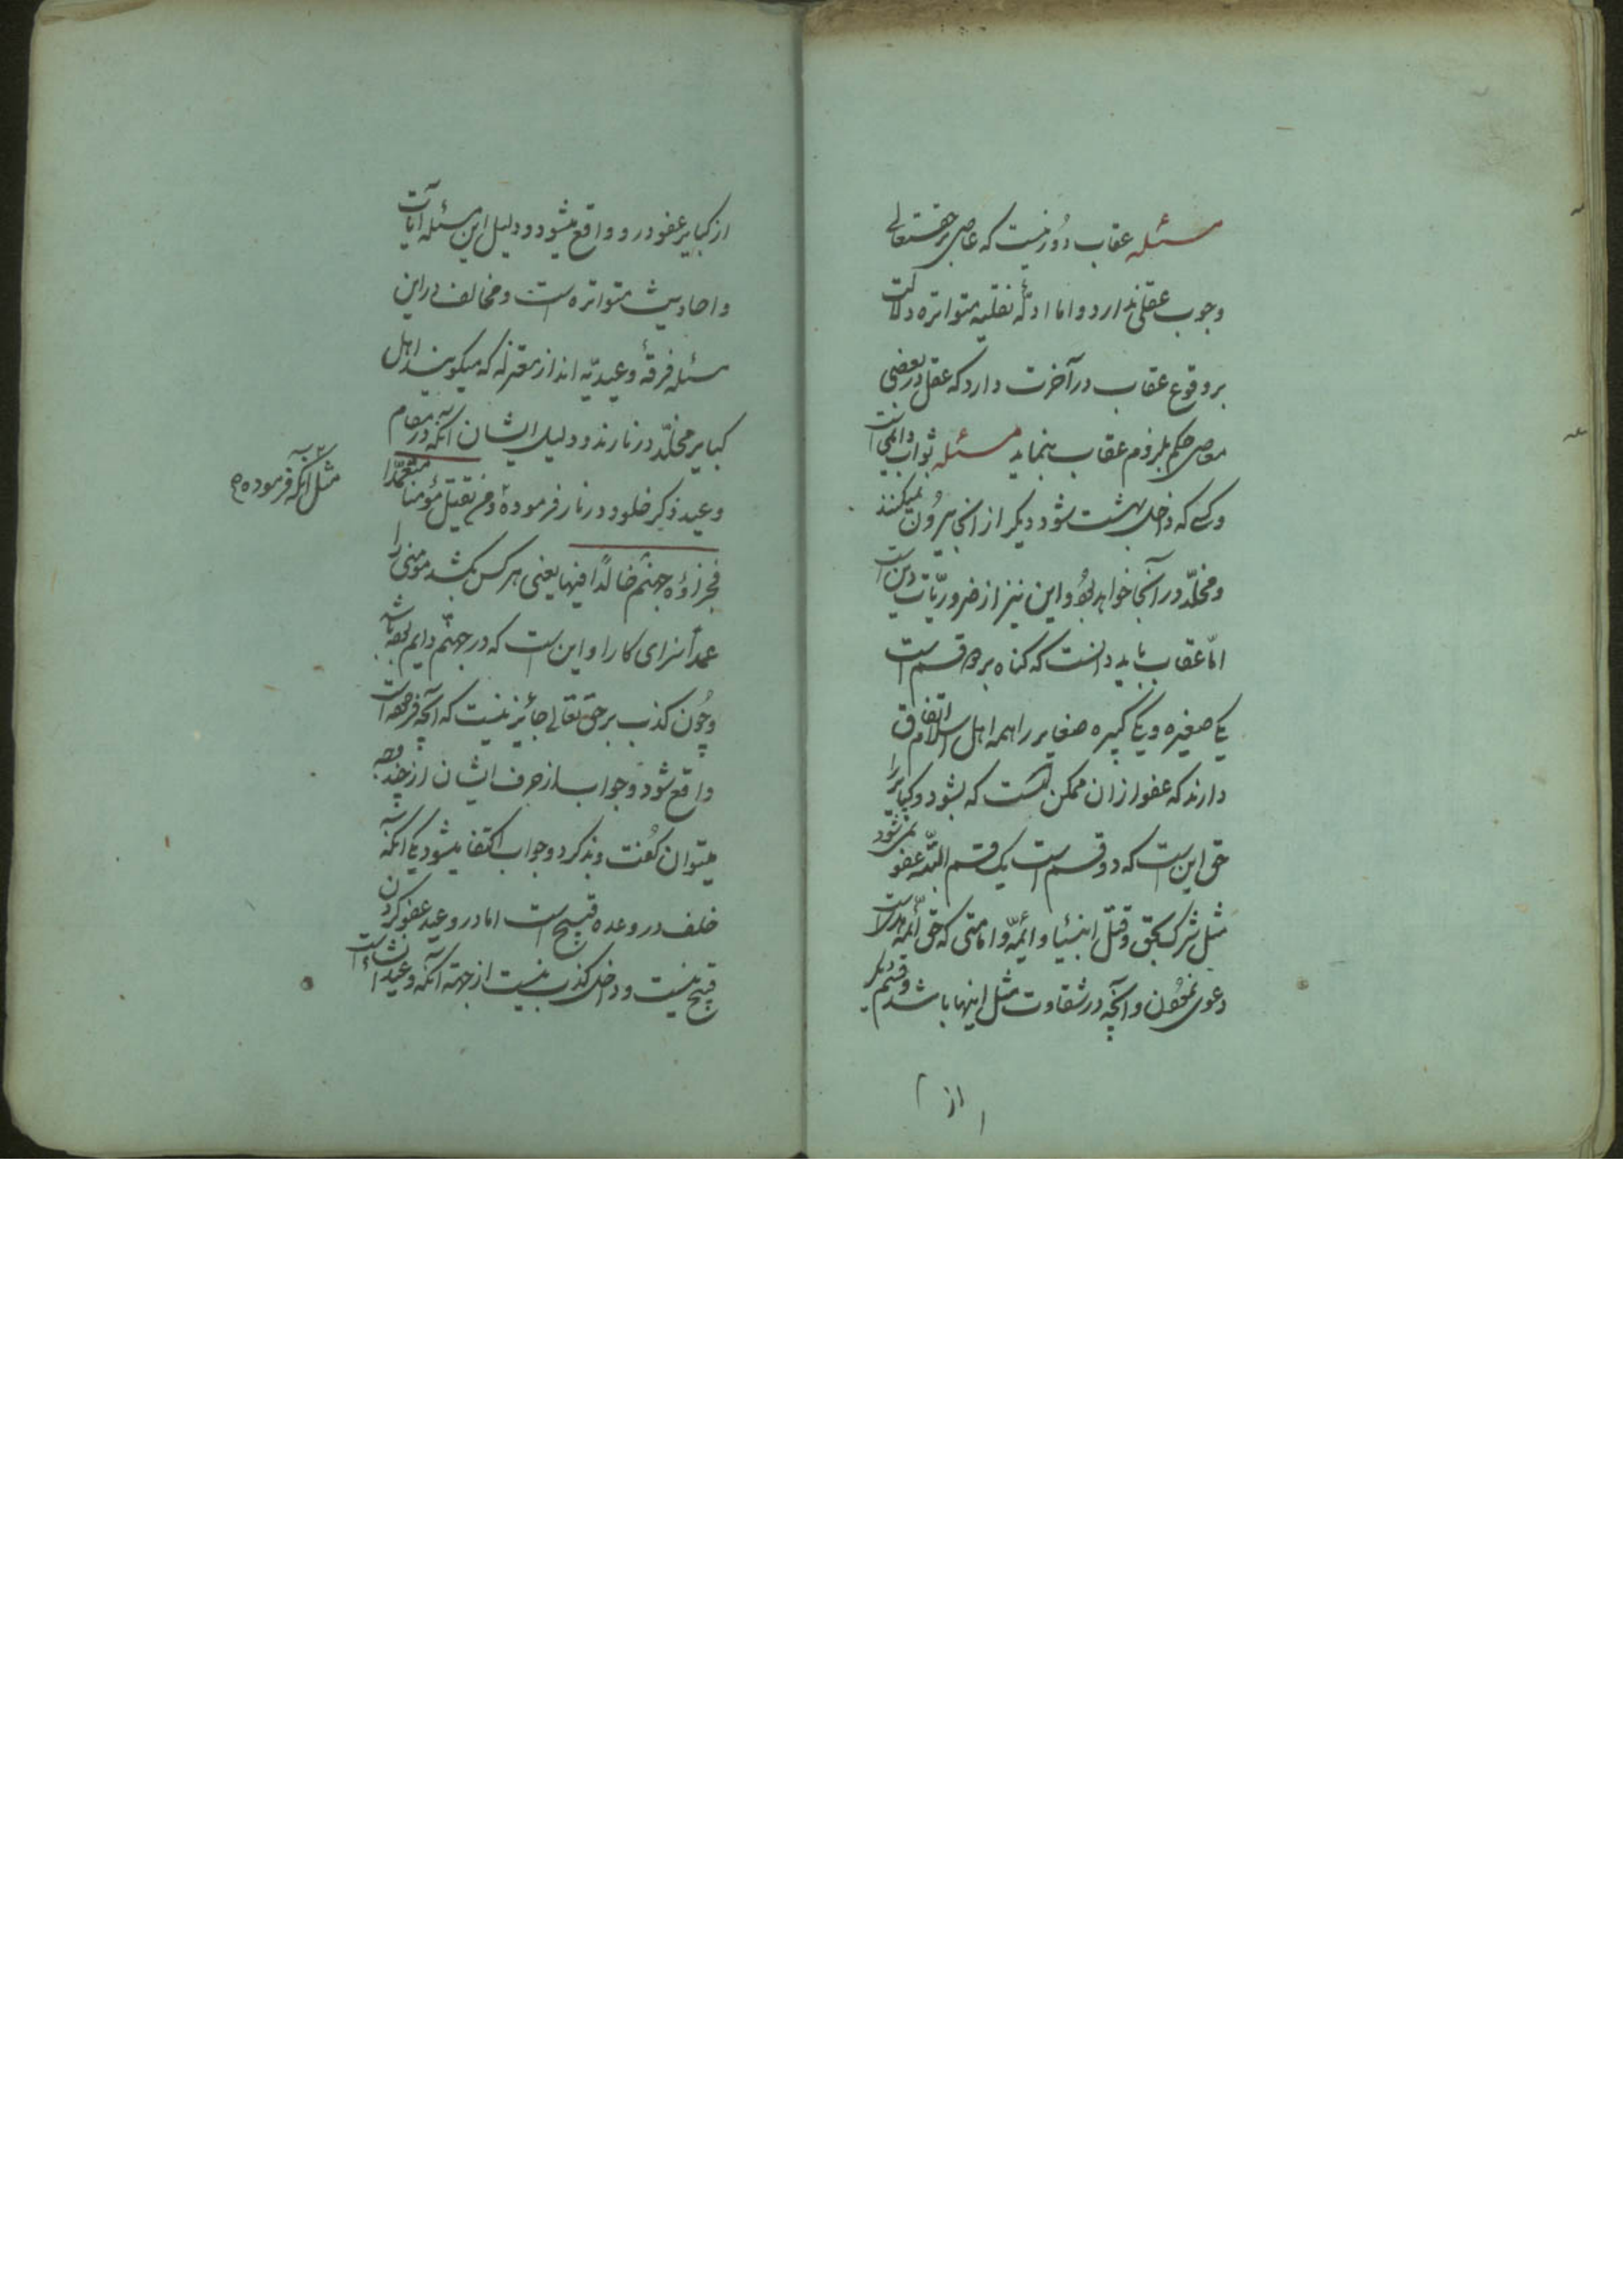 مسئله عقاب دوزنیست که عاصی بر حقتعالی
وجوب عقلی ندارد و اما ادلّهٔ نقلیه متواتره دلالت
بر وقوع عقاب در آخرت دارد که عقل در بعضی
معاصی حکم بلزوم عقاب بنماید مسئله ثواب دایمی است
و کسی که داخل بهشت شود دیگر از انجا بیرُون نمیکنند
و مخلّد در آنجا خواهد بود و این نیز از ضروریّات دین است
امّا عقاب باید دانست که کناه بر دو قسم است
یکی صغیره و یکی کبیره صغایر را همه اهل اسلام اتفاق
دارند که عفو ازان ممکن است که بشود و کبایر را
حق این است که دو قسم است یک قسم البتّه عفو نمیشود
مثل شرک بحق و قتل انبیا و ائمّه و امامتی که حق ائمّه هداست
دعوی نمودن و آنچه در شقاوت مثل اینها باشد و قسم دیگر
از
از کبایر عفو در و واقع میشود و دلیل این مسئله آیات
و احادیث متواتره است و مخالف در این
مسئله فرقهٔ وعیدیّه اند از معتزله که میکویند اهل
کبایر مخلّد در نارند و دلیل ایشان آنکه در مقام
وعید ذکر خلود در نار فرموده و من یقتل مؤمناً متعمّداً
مثل آنکه فرموده
فجزاؤه جهنم خالداً فیها یعنی هر کس بکشد مومنی را
عمداً سزای کار او این است که در جهنّم دایم بوده باشد
و چُون کذب بر حق تعالی جائز نیست که آنچه فرموده است
واقع شود و جواب از حرف ایشان از چند وجه
میتوان کفت و بذکر دو جواب اکتفا میشود یکی آنکه
خلف در وعده قبیح است اما در وعید عفو کردن
قبیح نیست و داخل کذب نیست از جهة آنکه وعید انشاست